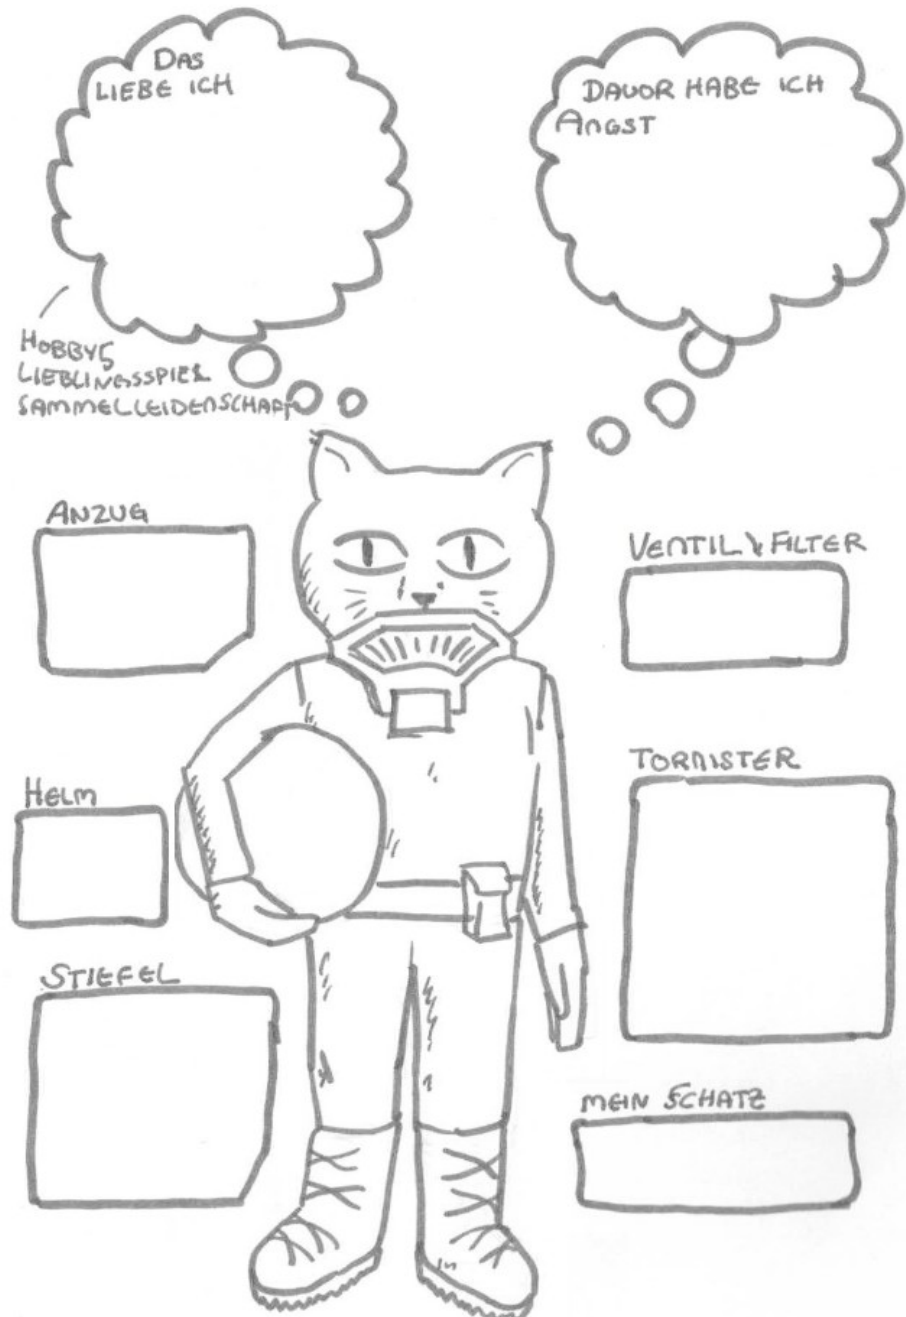 DAS
LIEBE ICH
DAVOR HABE ICH
ANGST
HOBBYS
LIEBLINGSSPIEL
SAMMELLEIDENSCHAFT
ANZUG
VENTIL & FILTER
HELM
TORNISTER
STIEFEL
MEIN SCHATZ